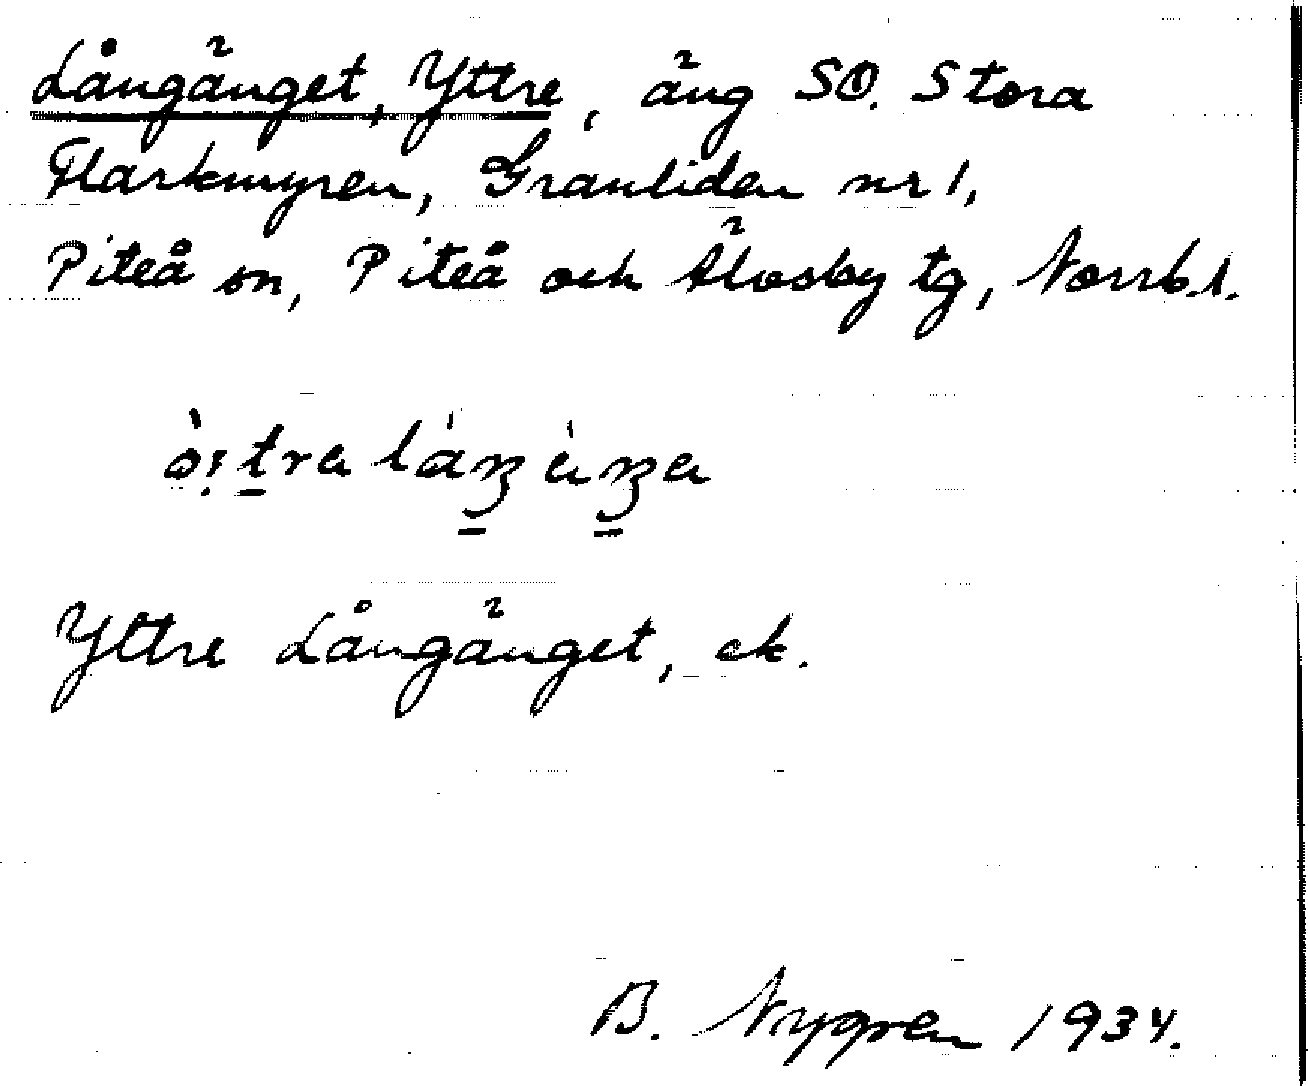 Långänget, Yttre, äng SO. Stora
Flarkmyren, Granliden nr 1,
Piteå sn, Piteå och Älvsby tg, Norrb. l.
Yttre Långänget, ek.
B. Nygren 1934.